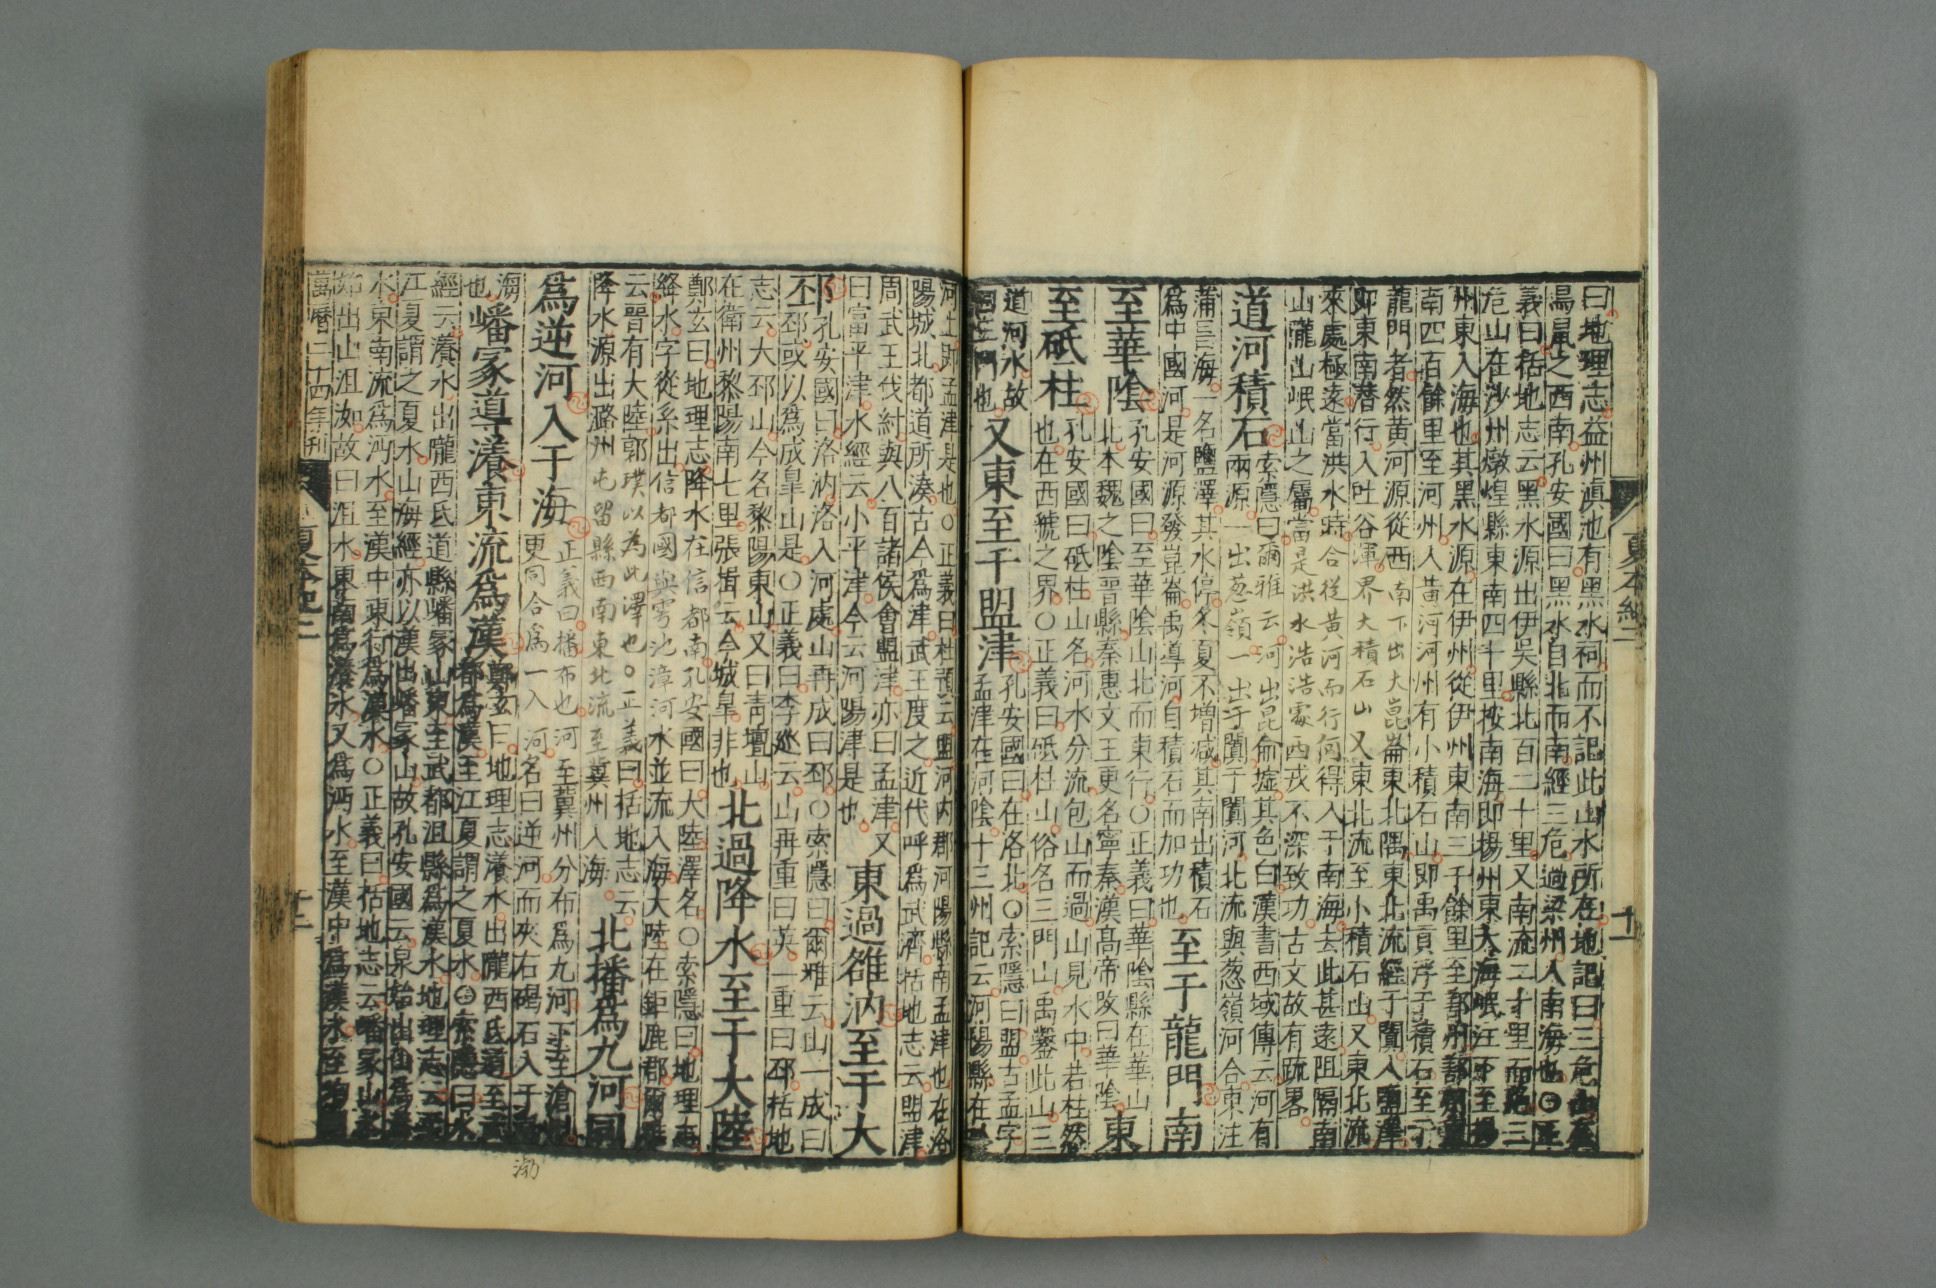 曰地理志益州滇池有黑水祠而不記此山水所在地記曰三危山在
鳥鼠之西南孔安國曰黑水自北而南經三危過梁州入南海也○正
義曰括地志云黑水源出伊吾縣北百二十里又南流二千里而絶三
危山在沙州燉煌縣東南四十里按南海即揚州東大海岷江下至揚
州東入海也其黑水源在伊州從伊州東南三千餘里至鄯州鄯州東
南四百餘里至河州入黄河河州有小積石山即禹貢浮于積石至于
龍門者然黄河源從西南下出大崑崙東北隅東北流經于闐入鹽澤
即東南潜行入吐谷渾界大積石山又東北流至小積石山又東北流
來處極遠當洪水時合從黄河而行何得入于南海去此甚遠阻隔南
山隴山岷山之屬當是洪水浩浩處西戎不深致功古文故有疏畧
道河積石
索隱曰爾雅云河出崑崙墟其色白漢書西域傳云河有
兩源一出葱嶺一出于闐于闐河北流與葱嶺河合東注
蒲昌海一名鹽澤其水停冬夏不增减其南出積石
爲中國河是河源發崑崙禹導河自積石而加功也
至于龍門南
至華陰
孔安國曰至華陰山北而東行○正義曰華陰縣在華山
北本魏之陰晉縣秦惠文王更名寧秦漢高帝改曰華陰
東
至砥柱
孔安國曰砥柱山名河水分流包山而過山見水中若柱然
也在西虢之界○正義曰砥柱山俗名三門山禹鑿此山三
道河水故
曰三門也
又東至于盟津
孔安國曰在洛北○索隱曰盟古孟字
孟津在河陰十三州記云河陽縣在
河上即孟津是也○正義曰杜預云盟河内郡河陽縣南孟津也在洛
陽城北都道所湊古今爲津武王度之近代呼爲武濟括地志云盟津
周武王伐紂與八百諸侯會盟津亦曰孟津又
曰富平津水經云小平津今云河陽津是也
東過雒汭至于大
邳
孔安國曰洛汭洛入河處山再成曰邳○索隱曰爾雅云山一成曰
邳或以爲成臯山是○正義曰李廵云山再重曰英一重曰邳括地
志云大邳山今名黎陽東山又曰青壇山
在衛州黎陽南七里張揖云今城臯非也
北過降水至于大陸
鄭玄曰地理志降水在信都南孔安國曰大陸澤名○索隱曰地理志
絳水字從糸出信都國與虖池漳河水並流入海大陸在鉅鹿郡爾雅
云晉有大陸郭璞以為此澤也○正義曰括地志云
降水源出潞州屯留縣西南東北流至冀州入海
北播爲九河同
爲逆河入于海
正義曰播布也河至冀州分布爲九河下至滄州
更同合爲一入河名曰逆河而夾右碣石入于
海
也
嶓冢道瀁東流爲漢
鄭玄曰地理志瀁水出隴西氐道至武
都爲漢至江夏謂之夏水○索隱曰水
經云瀁水出隴西氐道縣嶓冢山東至武都沮縣爲漢水地理志云至
江夏謂之夏水山海經亦以漢出嶓冢山故孔安國云泉始出山爲瀁
水東南流爲沔水至漢中東行爲漢水○正義曰括地志云嶓冢山水
始出山沮洳故曰沮水東南爲瀁水又爲沔水至漢中爲漢水至均州
萬曆二十四年刊
夏本紀二
十一
夏本紀二
十二
渤